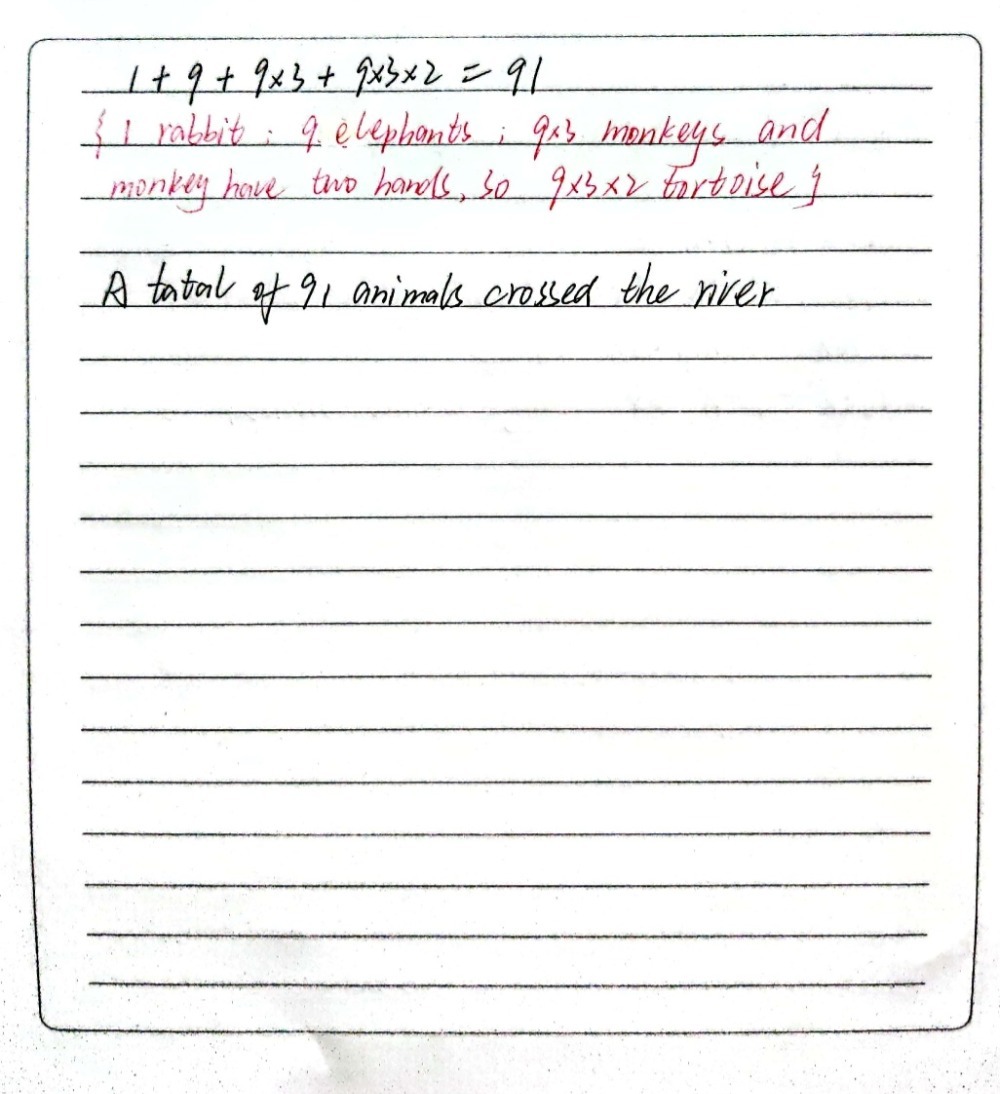 1 + 9 + 9×3 + 9×3×2 = 91
{ 1 rabbit ; 9 elephants ; 9×3 monkeys and
monkey have two hands, so 9×3×2 tortoise }
A tatal of 91 animals crossed the river